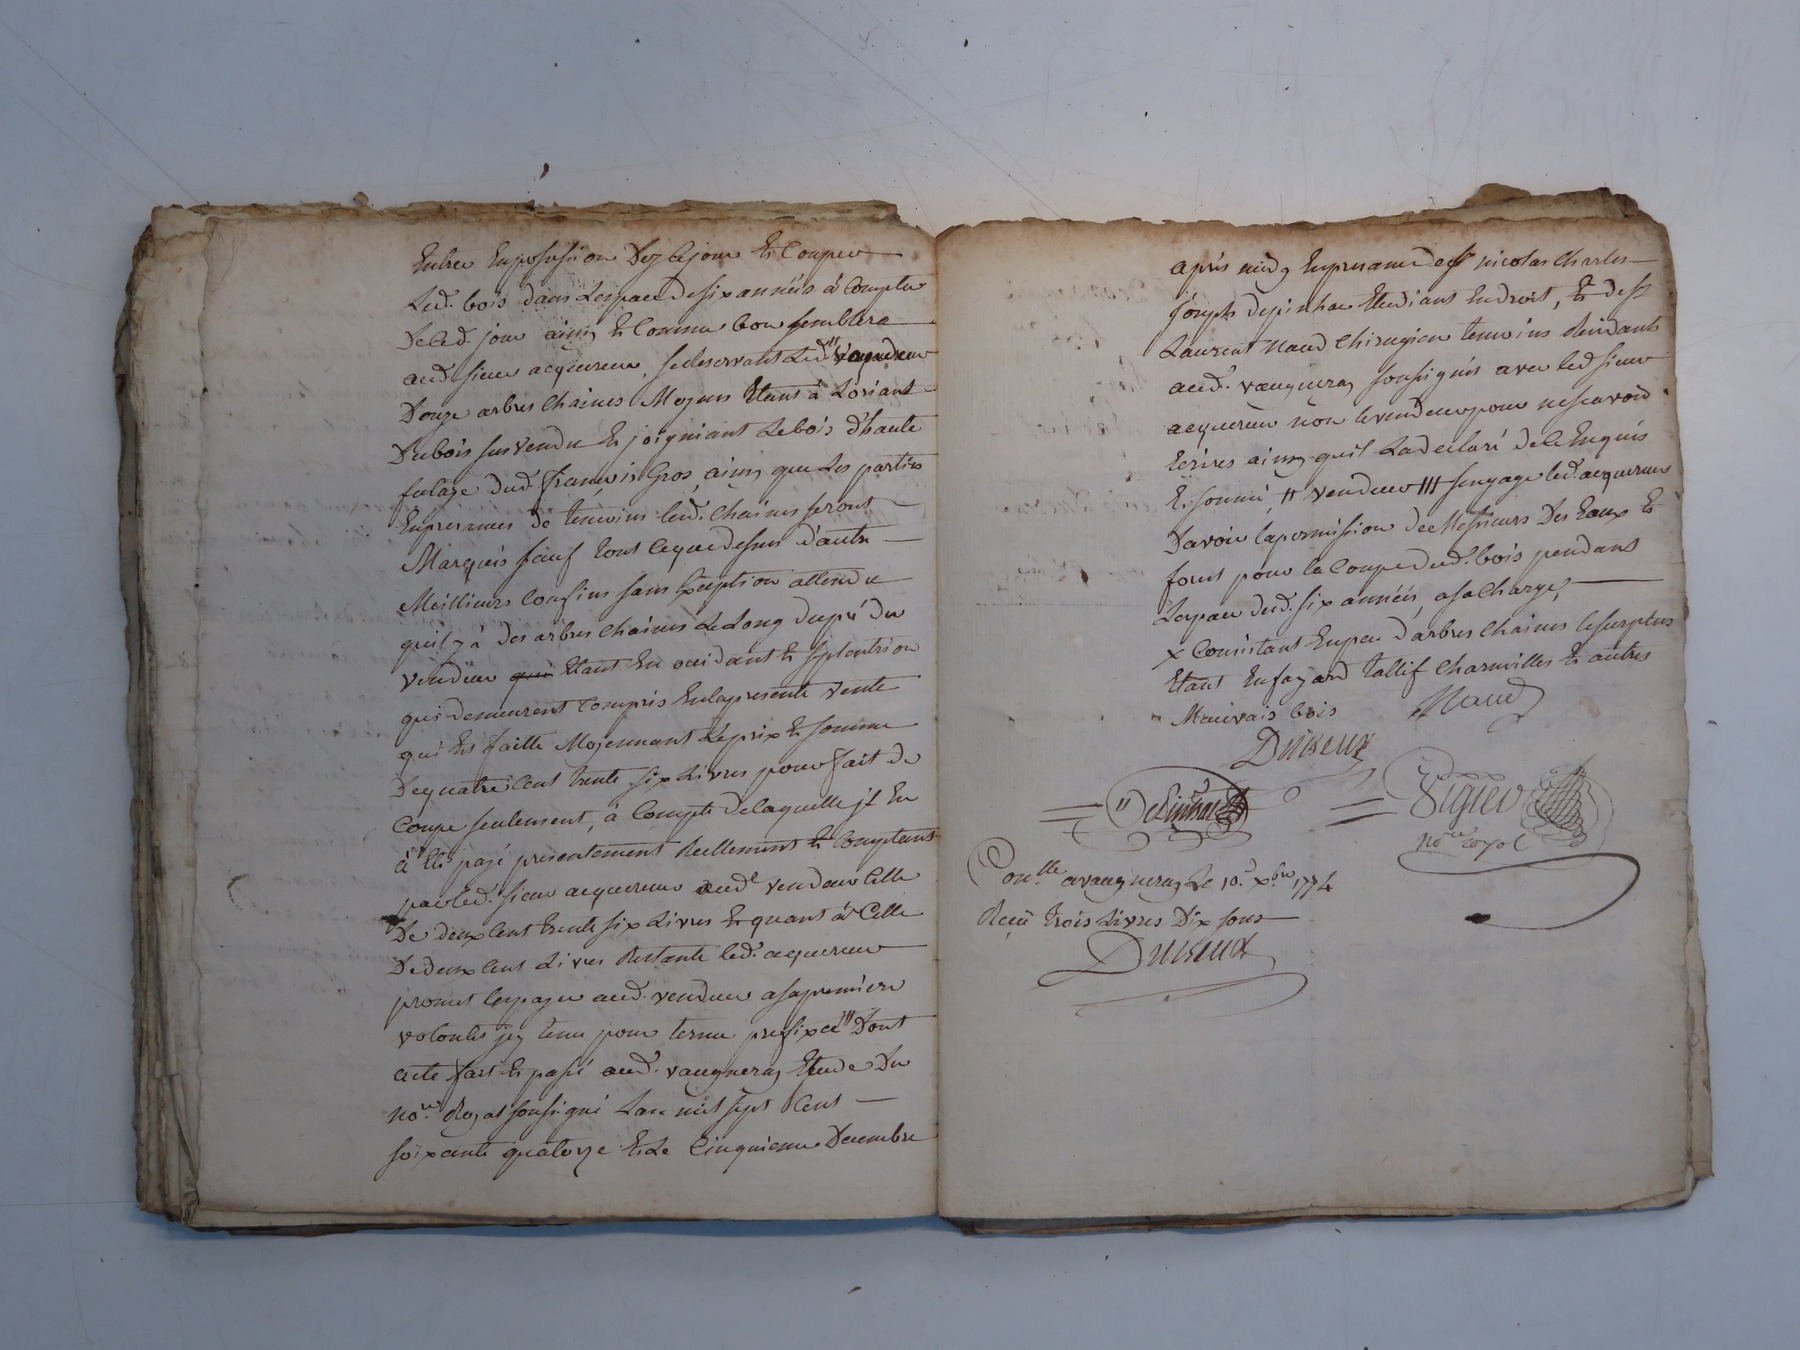 Entrer En possession Dez Ce jour Et Couper
Led. bois dans Lespace de six années à Compter
De Ced. jour ainsy Et Comme bon semblera
aud. sieur acquereur, se reservant Led. "
Douze arbres Chaines Moyens Etans à Loriant
Du bois sus vendu Et joigniant Le bois d'haute
futaze dud. francois Gros, ainsy que Les parties
En presances de temoins lesd. Chaines seront
Marqués sauf tout Ce que dessus d'autre
Meillieurs Confins sans Exception attendu
quil y à des arbres Chaines Le Long du pré du
vendeur Etant En occidant Et septentrion
qui demeurent Compris En la presente vente
qui Est faitte Moyennant Le prix Et somme
De quatre Cent trente six Livres pour fait de
Coupe seulement, à Compte de laquelle il En
à Eté payé presentement Reellement Et Comptant
par led. sieur acquereur aud. vendeur Celle
De deux Cent trente six Livres Et quant à Celle
De deux Cent Livres Restante led. acquereur
promet les payer aud. vendeur a sa premiere
volonté jcy tenu pour terme prefixé /// Dont
acte fait Et passé aud. vaugneray Etude Du
No.re Royal soussigné Lan mil sept Cent
soixante quatorze Et Le Cinquieme Decembre
apres midy En presance de sr nicolas Charles
joseph depinhac Etudiant En droit, Et de sr
Laurent Naud Chirugien temoins Residants
aud. vaugneray soussignés avec led sieur
acquereur non le vendeur pour ne scavoir
Ecrires ainsy quil La declaré de Ce Enquis
Et sommé, // vendeur /// sengage led. acquereur
Davoir la permission de Messieurs Des Eaux Et
forest pour la Coupe dud. bois pendant
Lespace desd. six années, a sa Charge,
x Consistant En peu d'arbres Chaines le surplus
Etant En fayard taillif Charmilles Et autres
Mauvais bois Naud
Duiseux
DePinhac Vigier
No.re royal
Con.lle a vaugneray Le 10.e Xbre 1774
Receu trois Livres Dix sous
Duiseux